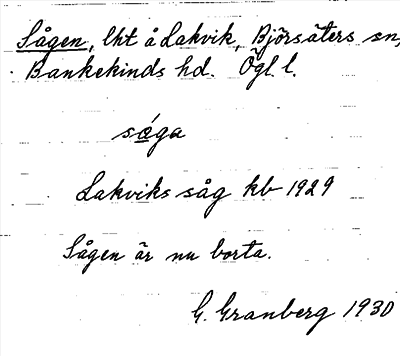 Sågen, lht å Lakvik, Björsäters sn,
Bankekinds hd. Ögl. l.
sǻga
Lakviks såg kb 1929
Sågen är nu borta.
G. Granberg 1930